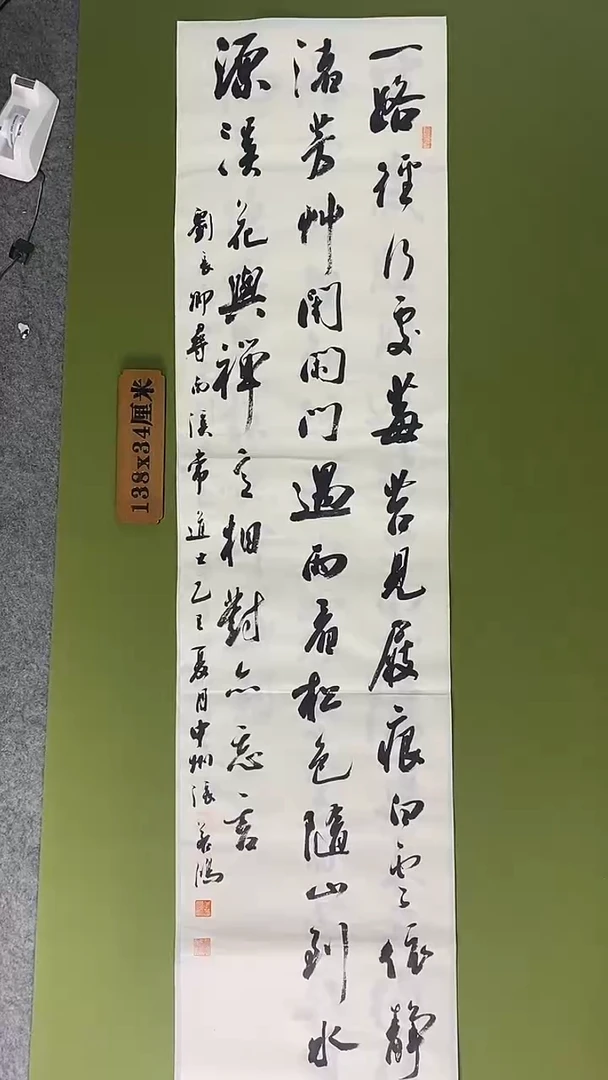 一路經行处莓苔見屐痕白雲依静
渚芳艸閉閑门過雨看松色隨山到水
源溪花與禪意相對亦忘言
劉長卿尋南溪常道士乙巳夏月中州張
138x34厘米